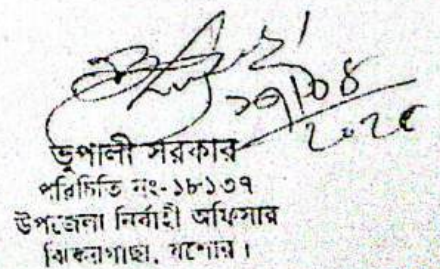 ২৭/০৪
২০২৫
ভুপালী সরকার
পরিচিতি নং-১৮১৩৭
উপজেলা নির্বাহী অফিসার
ঝিকরগাছা, যশোর।